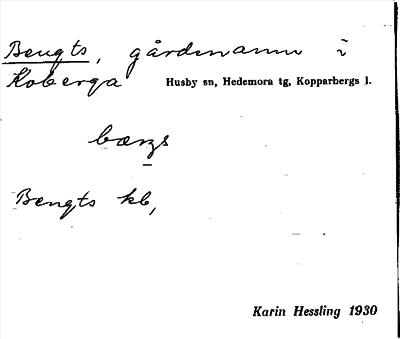 Bengts, gårdsnamn i
Koberga Husby sn, Hedemora tg, Kopparbergs l.
Bengts kb,
Karin Hessling 1930